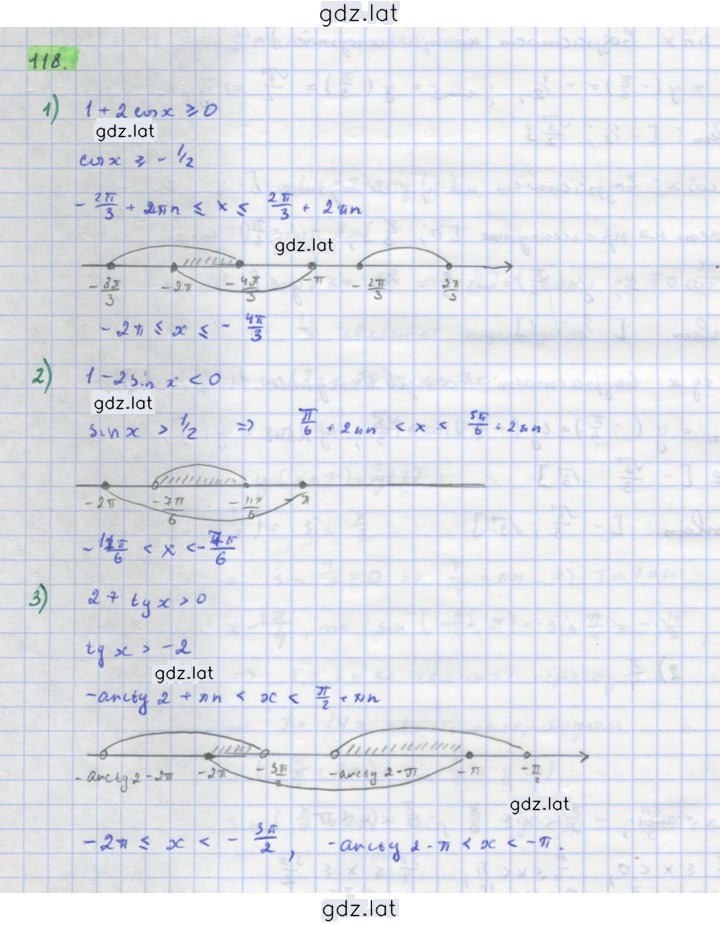 gdz.lat
118.
1) 1 + 2 cos x ≥ 0
gdz.lat
cos x ≥ - 1/2
- 2π/3 + 2πn ≤ x ≤ 2π/3 + 2πn
gdz.lat
- 8π/3 - 2π - 4π/3 - π - 2π/3 2π/3
- 2π ≤ x ≤ - 4π/3
2) 1 - 2 sin x < 0
gdz.lat
sin x > 1/2 ⇒ π/6 + 2πn < x < 5π/6 + 2πn
- 2π - 7π/6 - 11π/6 - π
- 11π/6 < x < - 7π/6
3) 2 + tg x > 0
tg x > - 2
gdz.lat
- arctg 2 + πn < x < π/2 + πn
- arctg 2 - 2π - 2π - 3π/2 - arctg 2 - π - π - π/2
gdz.lat
- 2π ≤ x < - 3π/2, - arctg 2 - π < x < - π.
gdz.lat